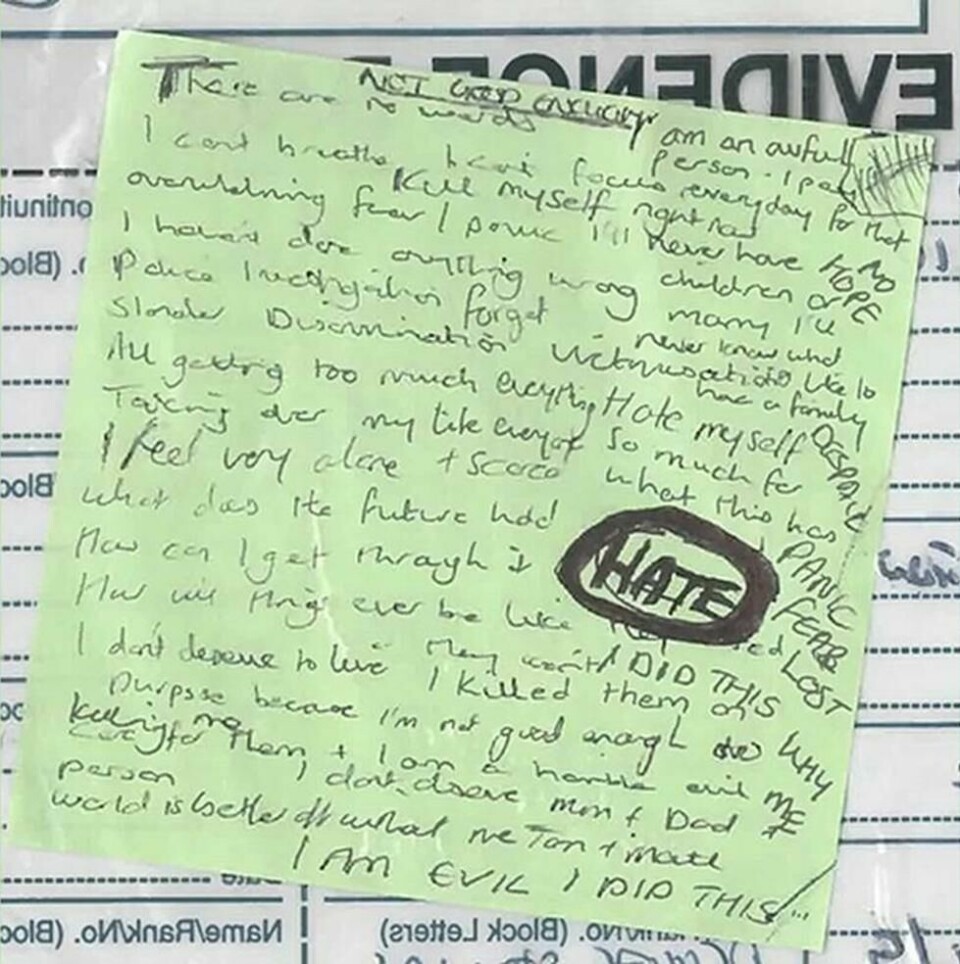 EVIDENCE
NOT GOOD ENOUGH
There are no words
I am an awful person. I pay
I can't breathe I can't focus everyday for that
Kill myself right now
overwhelming fear / panic I'll never have NO
HOPE
I haven't done anything wrong children or
Police Investigation forget marry I'll
never know what
Slander Discrimination Victimisation its like to
have a family
All getting too much everything Hate myself
Taking over my life everyday so much for
DESPAIR
I feel very alone + scared what this has
what does the future hold
PANIC
How can I get through it
HATE
FEAR
How will things ever be like they used
LOST
I don't deserve to live They won't I DID THIS
I killed them on
purpose because I'm not good enough to
WHY
care for them + I am a horrible evil
ME
killing me
person I don't deserve mum + Dad
world is better off without me
I AM EVIL I DID THIS
Name/Rank/No. (Block
Rank/No. (Block Letters)